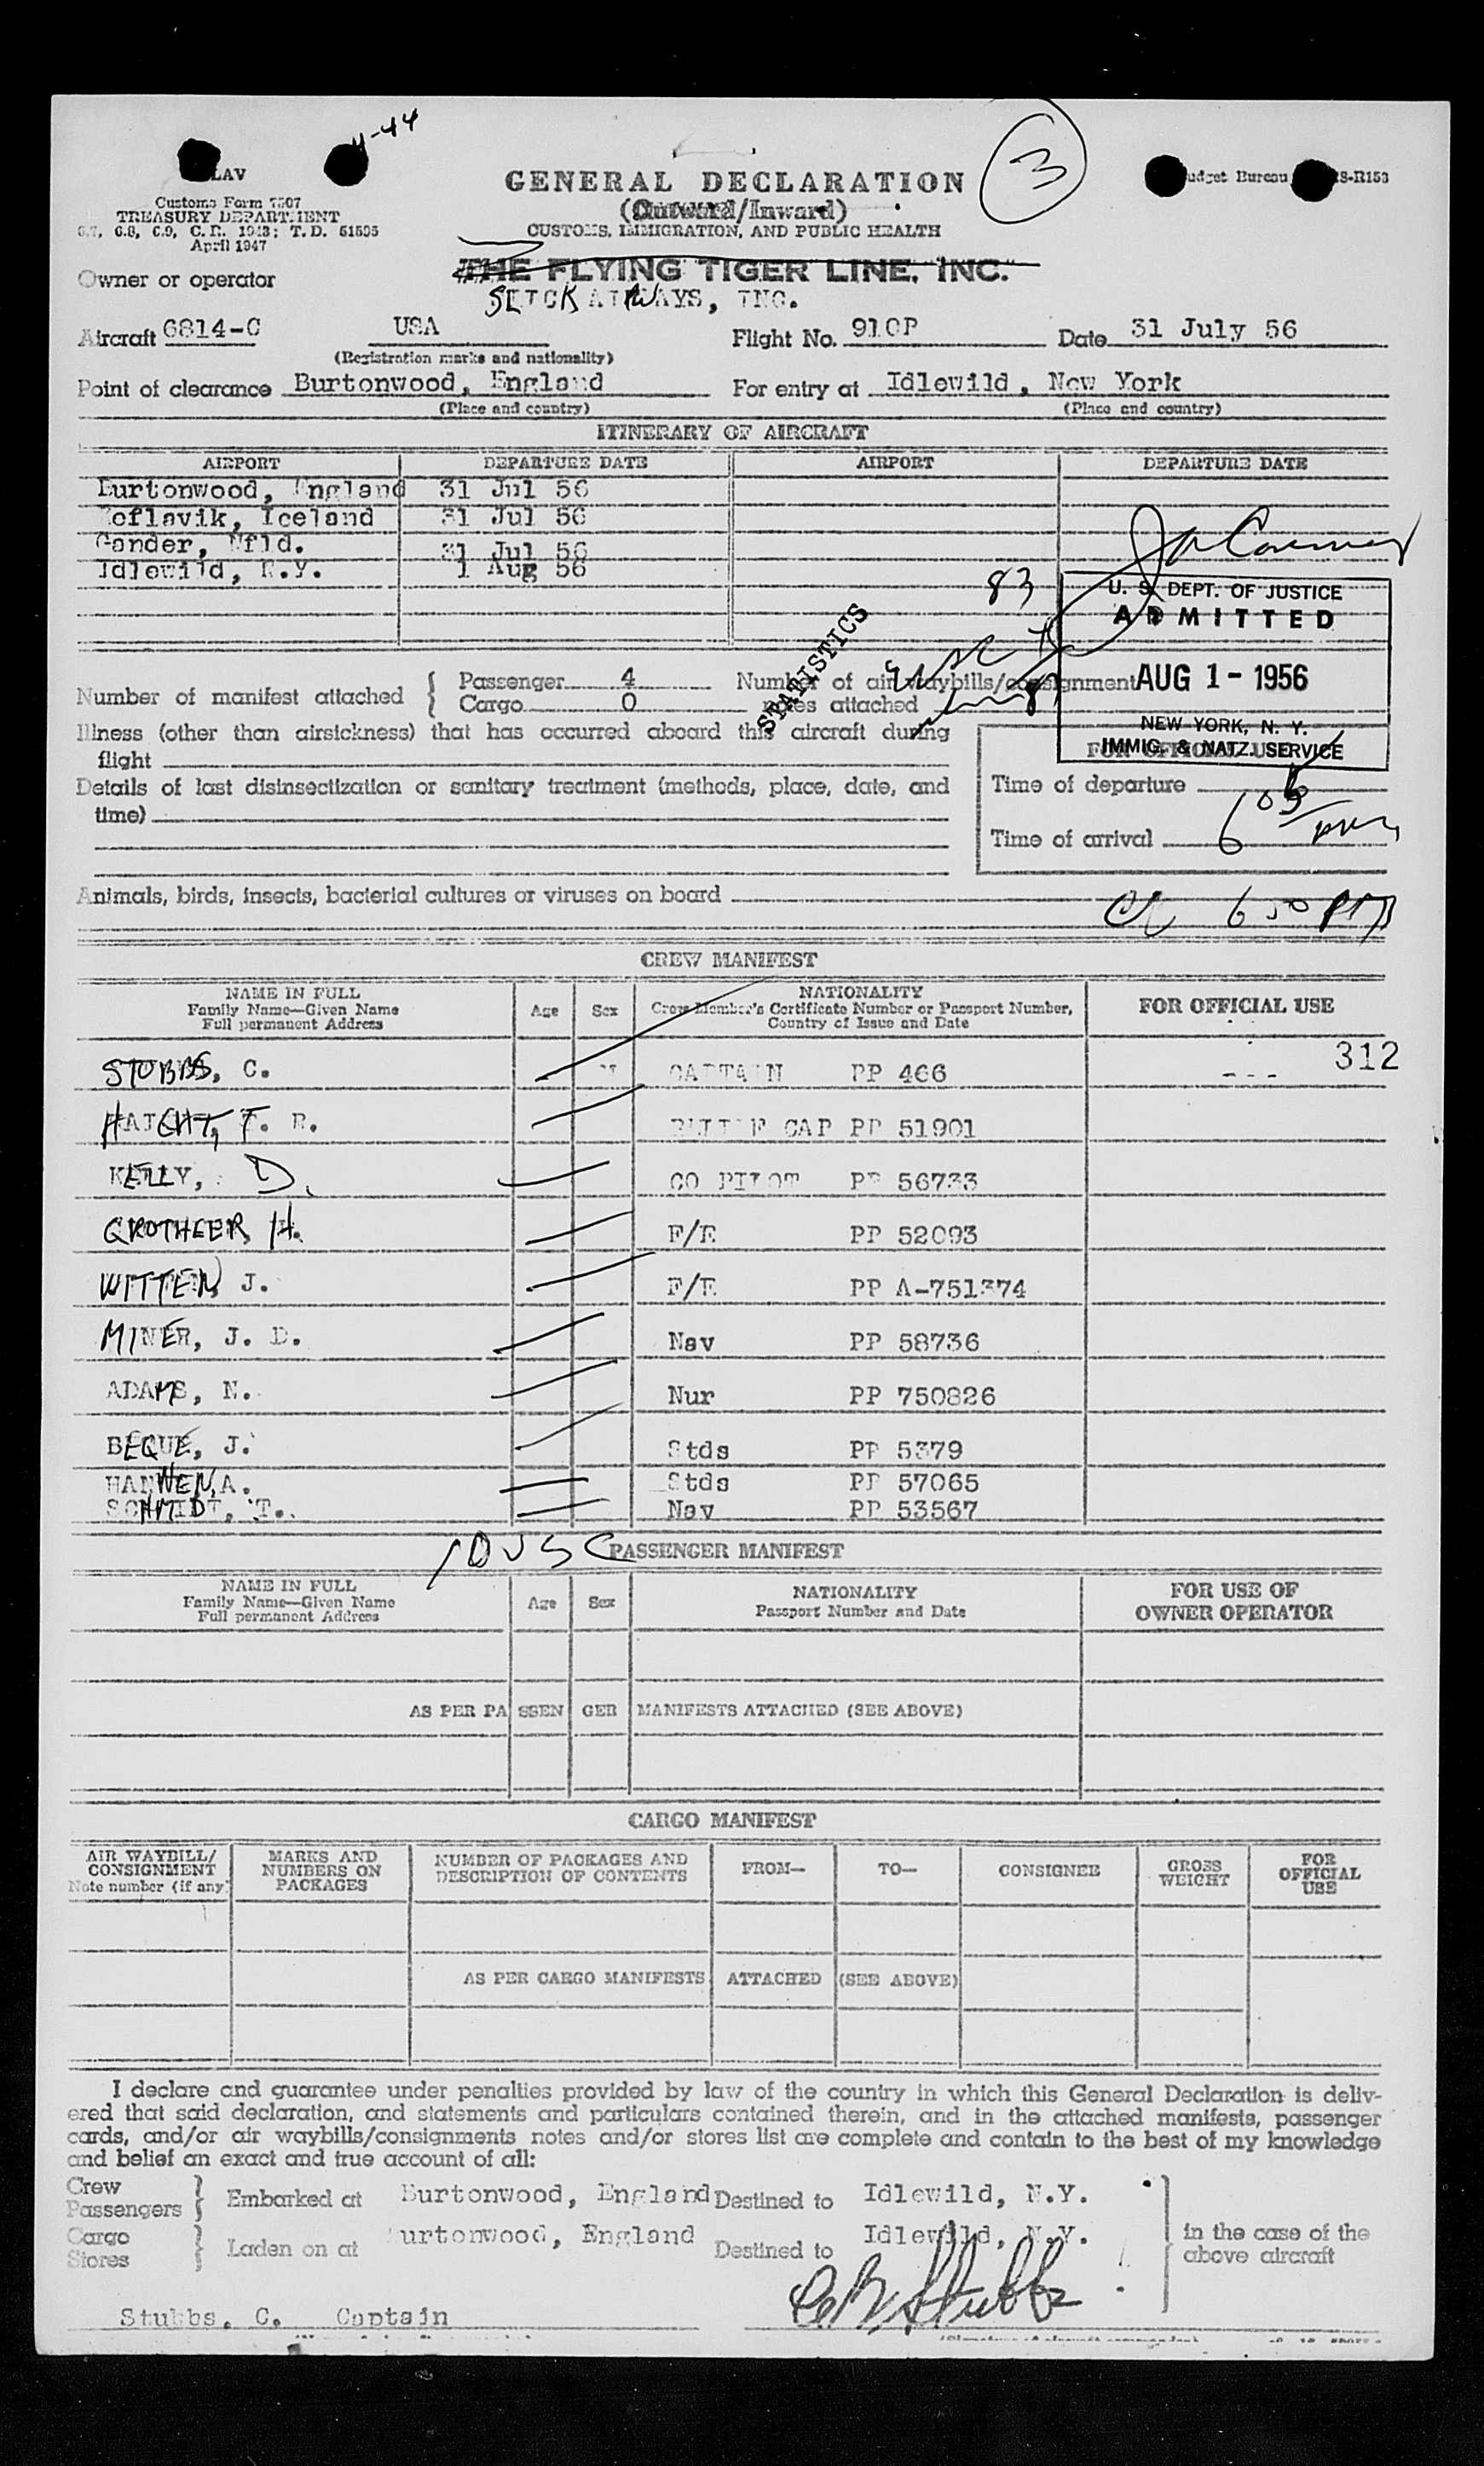 4-44
3
LAV
Customs Form 7507
TREASURY DEPARTMENT
6.7, 6.8, 6.9, C.R. 1943; T.D. 51505
April 1947
GENERAL DECLARATION
(Outward/Inward)
CUSTOMS, IMMIGRATION, AND PUBLIC HEALTH
Budget Bureau S-R153
Owner or operator
THE FLYING TIGER LINE, INC.
SLICK AIRWAYS, INC.
Aircraft 6814-C USA Flight No. 910P Date 31 July 56
(Registration marks and nationality)
Point of clearance Burtonwood, England For entry at Idlewild, New York
(Place and country) (Place and country)
ITINERARY OF AIRCRAFT
AIRPORT DEPARTURE DATE AIRPORT DEPARTURE DATE
Burtonwood, England 31 Jul 56
Keflavik, Iceland 31 Jul 56
Gander, Nfld. 31 Jul 56
Idlewild, N.Y. 1 Aug 56
83
U. S. DEPT. OF JUSTICE
ADMITTED
AUG 1 - 1956
NEW YORK, N. Y.
IMMIG. & NATZ. SERVICE
STATISTICS
Number of manifest attached Passenger 4 Cargo 0 Number of air waybills/consignment notes attached
Illness (other than airsickness) that has occurred aboard this aircraft during
flight
FOR OFFICIAL USE
Details of last disinsectization or sanitary treatment (methods, place, date, and
time)
Time of departure
Time of arrival 6 05 pm
Animals, birds, insects, bacterial cultures or viruses on board
6 50 PM
CREW MANIFEST
NAME IN FULL
Family Name—Given Name
Full permanent Address
Age Sex
NATIONALITY
Crew Member's Certificate Number or Passport Number,
Country of Issue and Date
FOR OFFICIAL USE
312
STUBBS, C. M CAPTAIN PP 466
HAIGHT, F. R. CAP PP 51901
KELLY, D. CO PILOT PP 56733
GROTHEER, H. F/E PP 52093
WITTEN, J. F/E PP A-751374
MINER, J. D. Nav PP 58736
ADAMS, N. Nur PP 750826
BEQUE, J. Stds PP 5379
HANWEN, A. Stds PP 57065
SCHMIDT, T. Nav PP 53567
10 USC
PASSENGER MANIFEST
NAME IN FULL
Family Name—Given Name
Full permanent Address
Age Sex
NATIONALITY
Passport Number and Date
FOR USE OF
OWNER OPERATOR
AS PER PASSENGER MANIFESTS ATTACHED (SEE ABOVE)
CARGO MANIFEST
AIR WAYBILL/
CONSIGNMENT
Note number (if any)
MARKS AND
NUMBERS ON
PACKAGES
NUMBER OF PACKAGES AND
DESCRIPTION OF CONTENTS
FROM—
TO—
CONSIGNEE
GROSS
WEIGHT
FOR
OFFICIAL
USE
AS PER CARGO MANIFESTS ATTACHED (SEE ABOVE)
I declare and guarantee under penalties provided by law of the country in which this General Declaration is deliv-
ered that said declaration, and statements and particulars contained therein, and in the attached manifests, passenger
cards, and/or air waybills/consignments notes and/or stores list are complete and contain to the best of my knowledge
and belief an exact and true account of all:
Crew
Passengers Embarked at Burtonwood, England Destined to Idlewild, N.Y.
Cargo
Stores Laden on at Burtonwood, England Destined to Idlewild, N.Y.
in the case of the
above aircraft
Stubbs, C. Captain